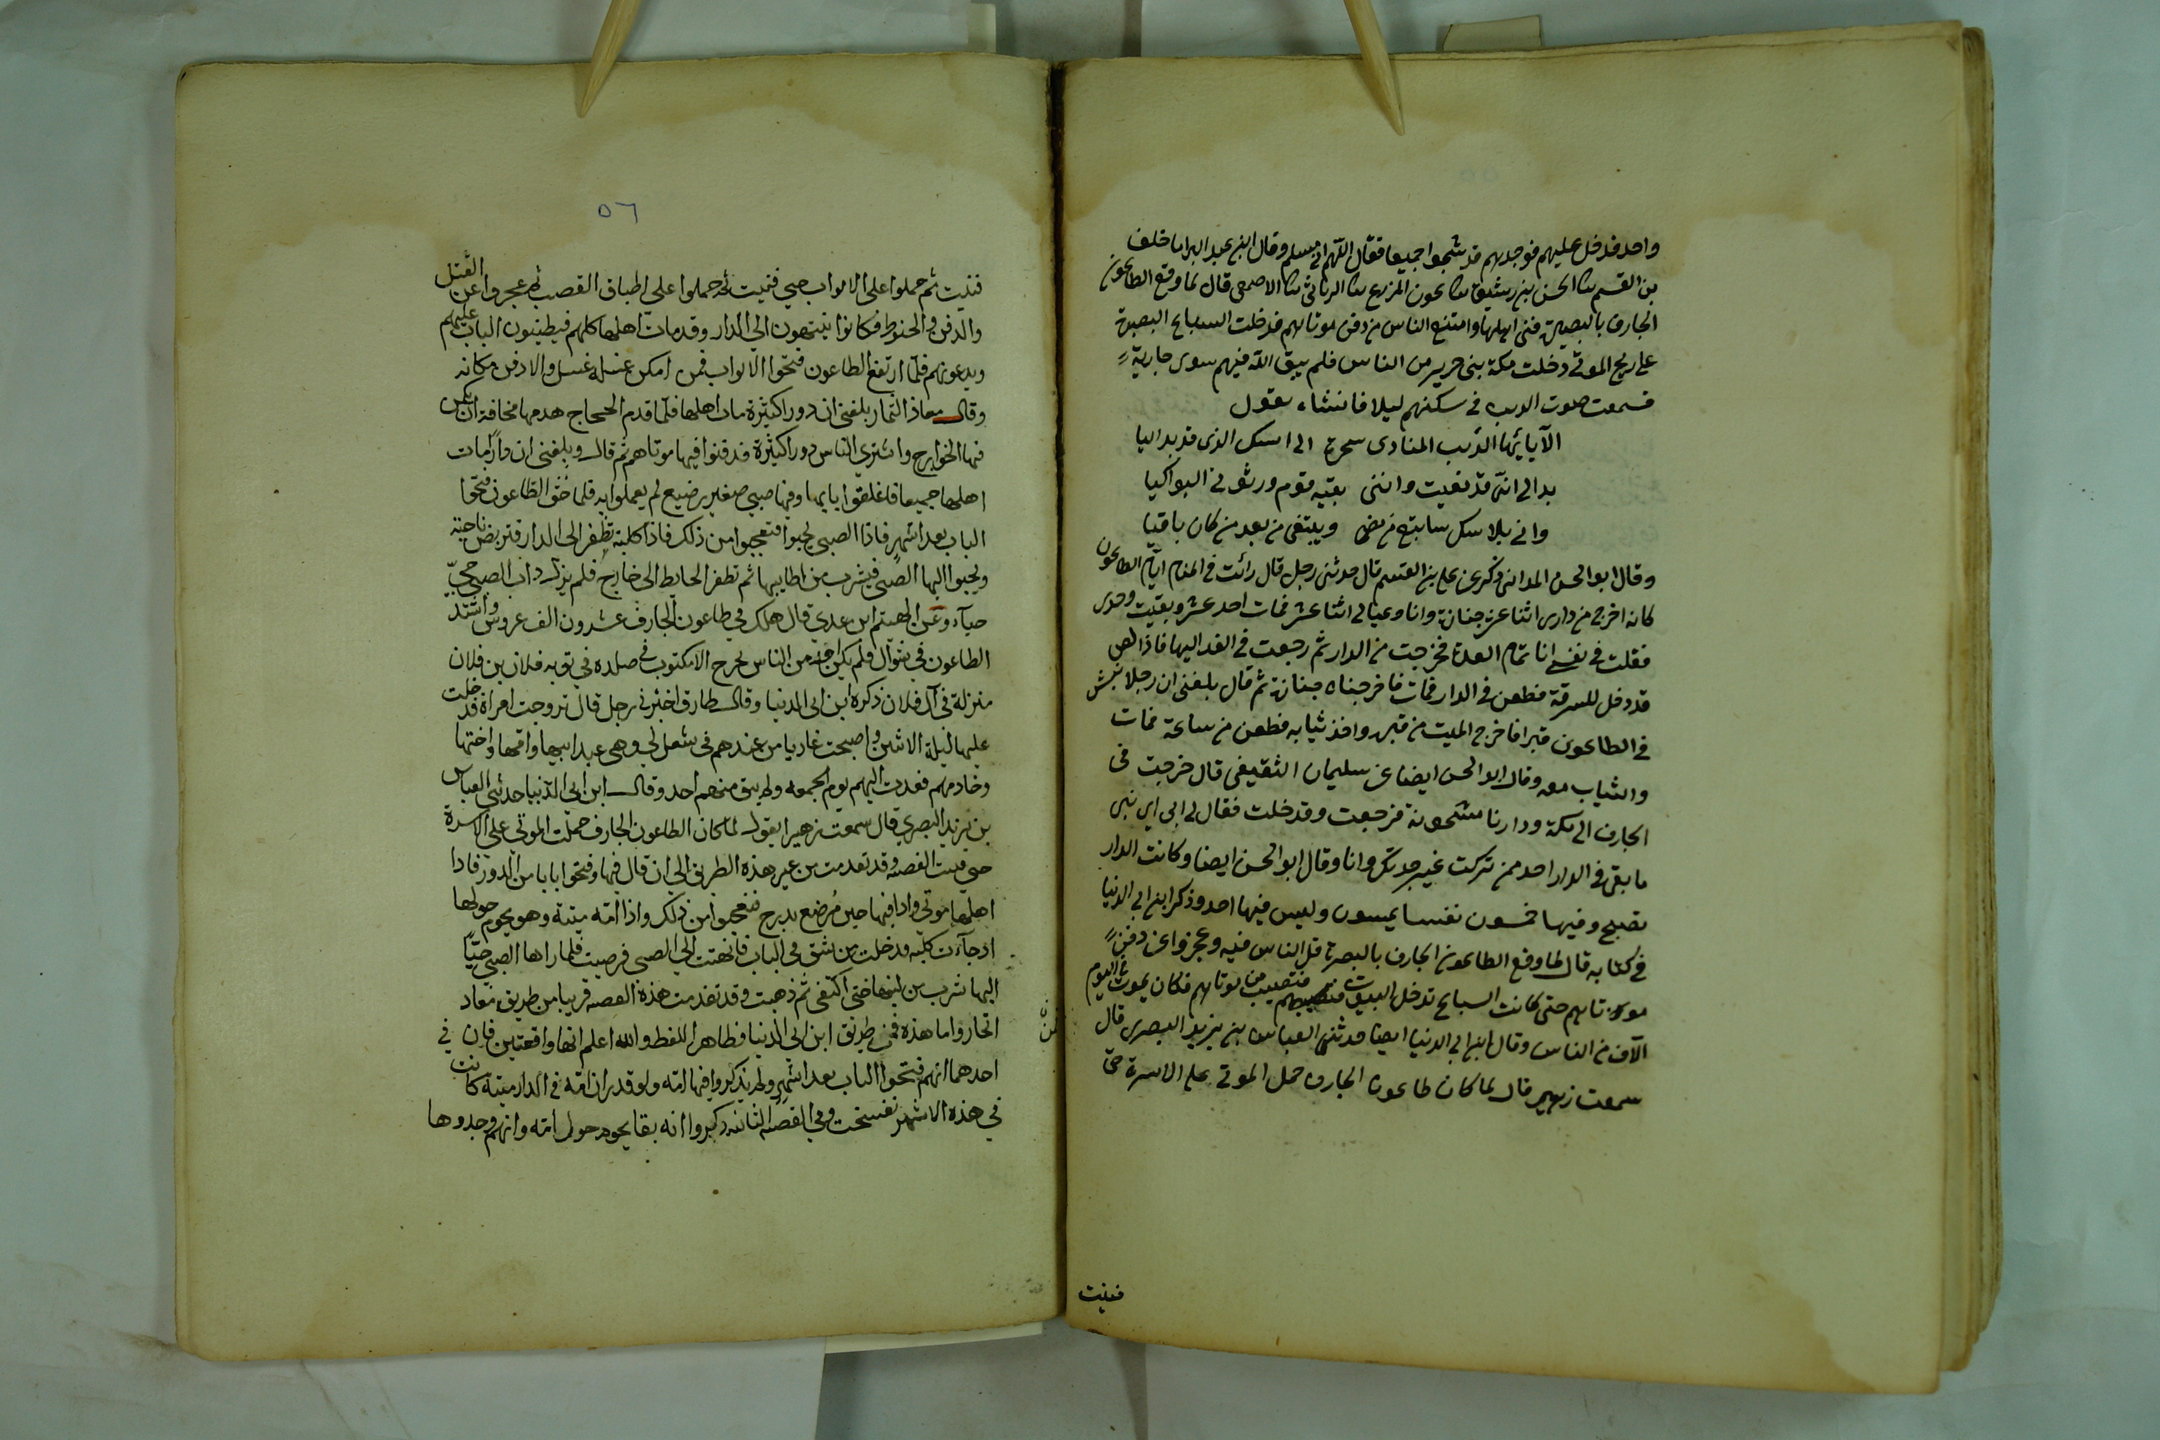 واحد فدخل عليهم فوجدهم قد سُجّوا جميعا فقال اللّهم اني مسلم وقال ابن عبد البر اما خلف
بن القسم ثنا الحسن بن رشيق ثنا يموت المزرع ثنا الرياشي ثنا الاصمعي قال لما وقع الطاعون
الجارف بالبصرة فنى اهلها وامتنع الناس من دفن موتاهم فدخلت السباع البصرة
على ريح الموتى وخلت سكة بنى جرير من الناس فلم يبق اللّه فيهم سوى جارية
فسمعت صوت الديب في سكتهم ليلا فانشاء يقول
الآ يايّها الذيب المنادى سحرة الى اسك الذى قد بدا ليا
بدا لى انى قد نعيت واننى بقية قوم ورثونى البواكيا
وانى بلا شك سابتع من مضى ويبتغى من بعد من كان باقيا
وقال ابو الحسن المدائنى ذكر عن على بن القسم قال حدثنى رجل قال رأيت فى المنام ايّام الطاعون
كانه اخرج من دارى اثنا عشر جنازة وانا وعيالى اثنا عشر فمات احد عشر وبقيت وحدى
فقلت فى نفسى انا تمام العدة فخرجت من الدار ثم رجعت فى الغد اليها فاذا لص
قد دخل للسرقة فطعن فى الدار فمات فاخرجنا جنازة ثم قال بلغنى ان رجلا نبش
فى الطاعون قبرا فاخرج الميت من قبره واخذ ثيابه فطعن من ساعة فمات
والثياب معه وقال ابو الحسن ايضا عن سليمان الثقيفى قال خرجت فى
الجارف الى مكة ودارنا مشحونة فرجعت وقد خلت فقال لى ابى اى بنى
ما بقى فى الدار احد ممن تركت غير جدتك وانا وقال ابو الحسن ايضا وكانت الدار
تصبح وفيها خمسون نفسا يمسون وليس فيها احد وذكر ابن ابى الدنيا
فى كتابه قال لما وقع الطاعون الجارف بالبصرة قل الناس فيه وعجزوا عن دفن
موتاهم حتى كانت السباع تدخل البيوت فتصيب من موتاهم فكان يموت فى اليوم
الآف من الناس وقال ابن ابى الدنيا ايضا حدثنى العباس بن يزيد البصرى قال
سمعت زهير قال لما كان طاعون الجارف حمل الموتى على الاسرة حتى
فنيت
٥٦
فنيت ثم حملوا على الابواب حتى فنيت ثم حملوا على اطباق القصب ثم عجزوا عن الغسل
والدفن والحنوط فكانوا ينتهون الى الدار وقد مات اهلها كلهم فيطينون الباب عليهم
ويدعونهم فلمّا ارتفع الطاعون فتحوا الابواب فمن امكن غسله غسل والا دفن مكانه
وقال معاذ التمار بلغنى ان دورا كثيرة مات اهلها فلمّا قدم الحجاج هدمها مخافة ان يكمن
فيها الخوارج واشترى الناس دورا كثيرة فدفنوا فيها موتاهم ثم قال وبلغنى ان دارا مات
اهلها جميعا فاغلقوا بابها وفيها صبى صغير رضيع لم يعملوا به فلما خف الطاعون فتحوا
الباب بعد اشهر فاذا الصبى يحبوا فتعجبوا من ذلك فاذا كلبة تطفر الى الدار فتربض ناحية
ويحبوا اليها الصبى فيشرب من اطايبها ثم تطفر الحايط الى خارج فلم يزل داب الصبى حتى
حيآء وعن الهيثم ابن عدى قال هلك فى طاعون الجارف عشرون الف عروس واشتد
الطاعون فى شوال فلم يكن احد من الناس يخرج الا مكتوب فى صدره فى ثوبه فلان بن فلان
منزلة فى آل فلان ذكره ابن ابى الدنيا وقال طارق اخبرنى رجل قال تزوجت امراة فدخلت
عليها ليلة الاثنين واصبحت غاديا من عندهم فى شغل لى وهى عند ابيها وامها واختها
وخادمهم فغدوت اليهم يوم الجمعه ولم يبق منهم احد وقال ابن ابى الدنيا حدثنى العباس
بن يزيد البصرى قال سمعت زهيرا يقول لما كان الطاعون الجارف حملت الموتى على الاسرة
حتى فنيت القصه وقد تقدمت من غير هذه الطريق الى ان قال فيها وفتحوا بابا من الدور فاذا
اهلها موتى واذا فيها حين مرضع يدرج فتعجبوا من ذلك واذا امّه ميتة وهو يحوم حولها
اذ جآءت كلبه فدخلت من شق فى الباب فانتهت الى الصبى فربضت فلما راها الصبى حبا
اليها شرب من لبنها حتى اكتفى ثم ذهبت وقد تقدمت هذه القصه قريبا من طريق معاد
التمار واما هذه فمن طريق ابن ابى الدنيا فظاهر اللفظ والله اعلم انها واقعتين فان فى
احدهما انهم فتحوا الباب بعد اشهر ولم يذكروا فيها امّه ولو قدر ان امّه فى الدار ميتة كانت
فى هذه الاشهر تفسخت وفى القصة الثانية ذكروا انه بقا يحوم حول امه وانهم وجدوها